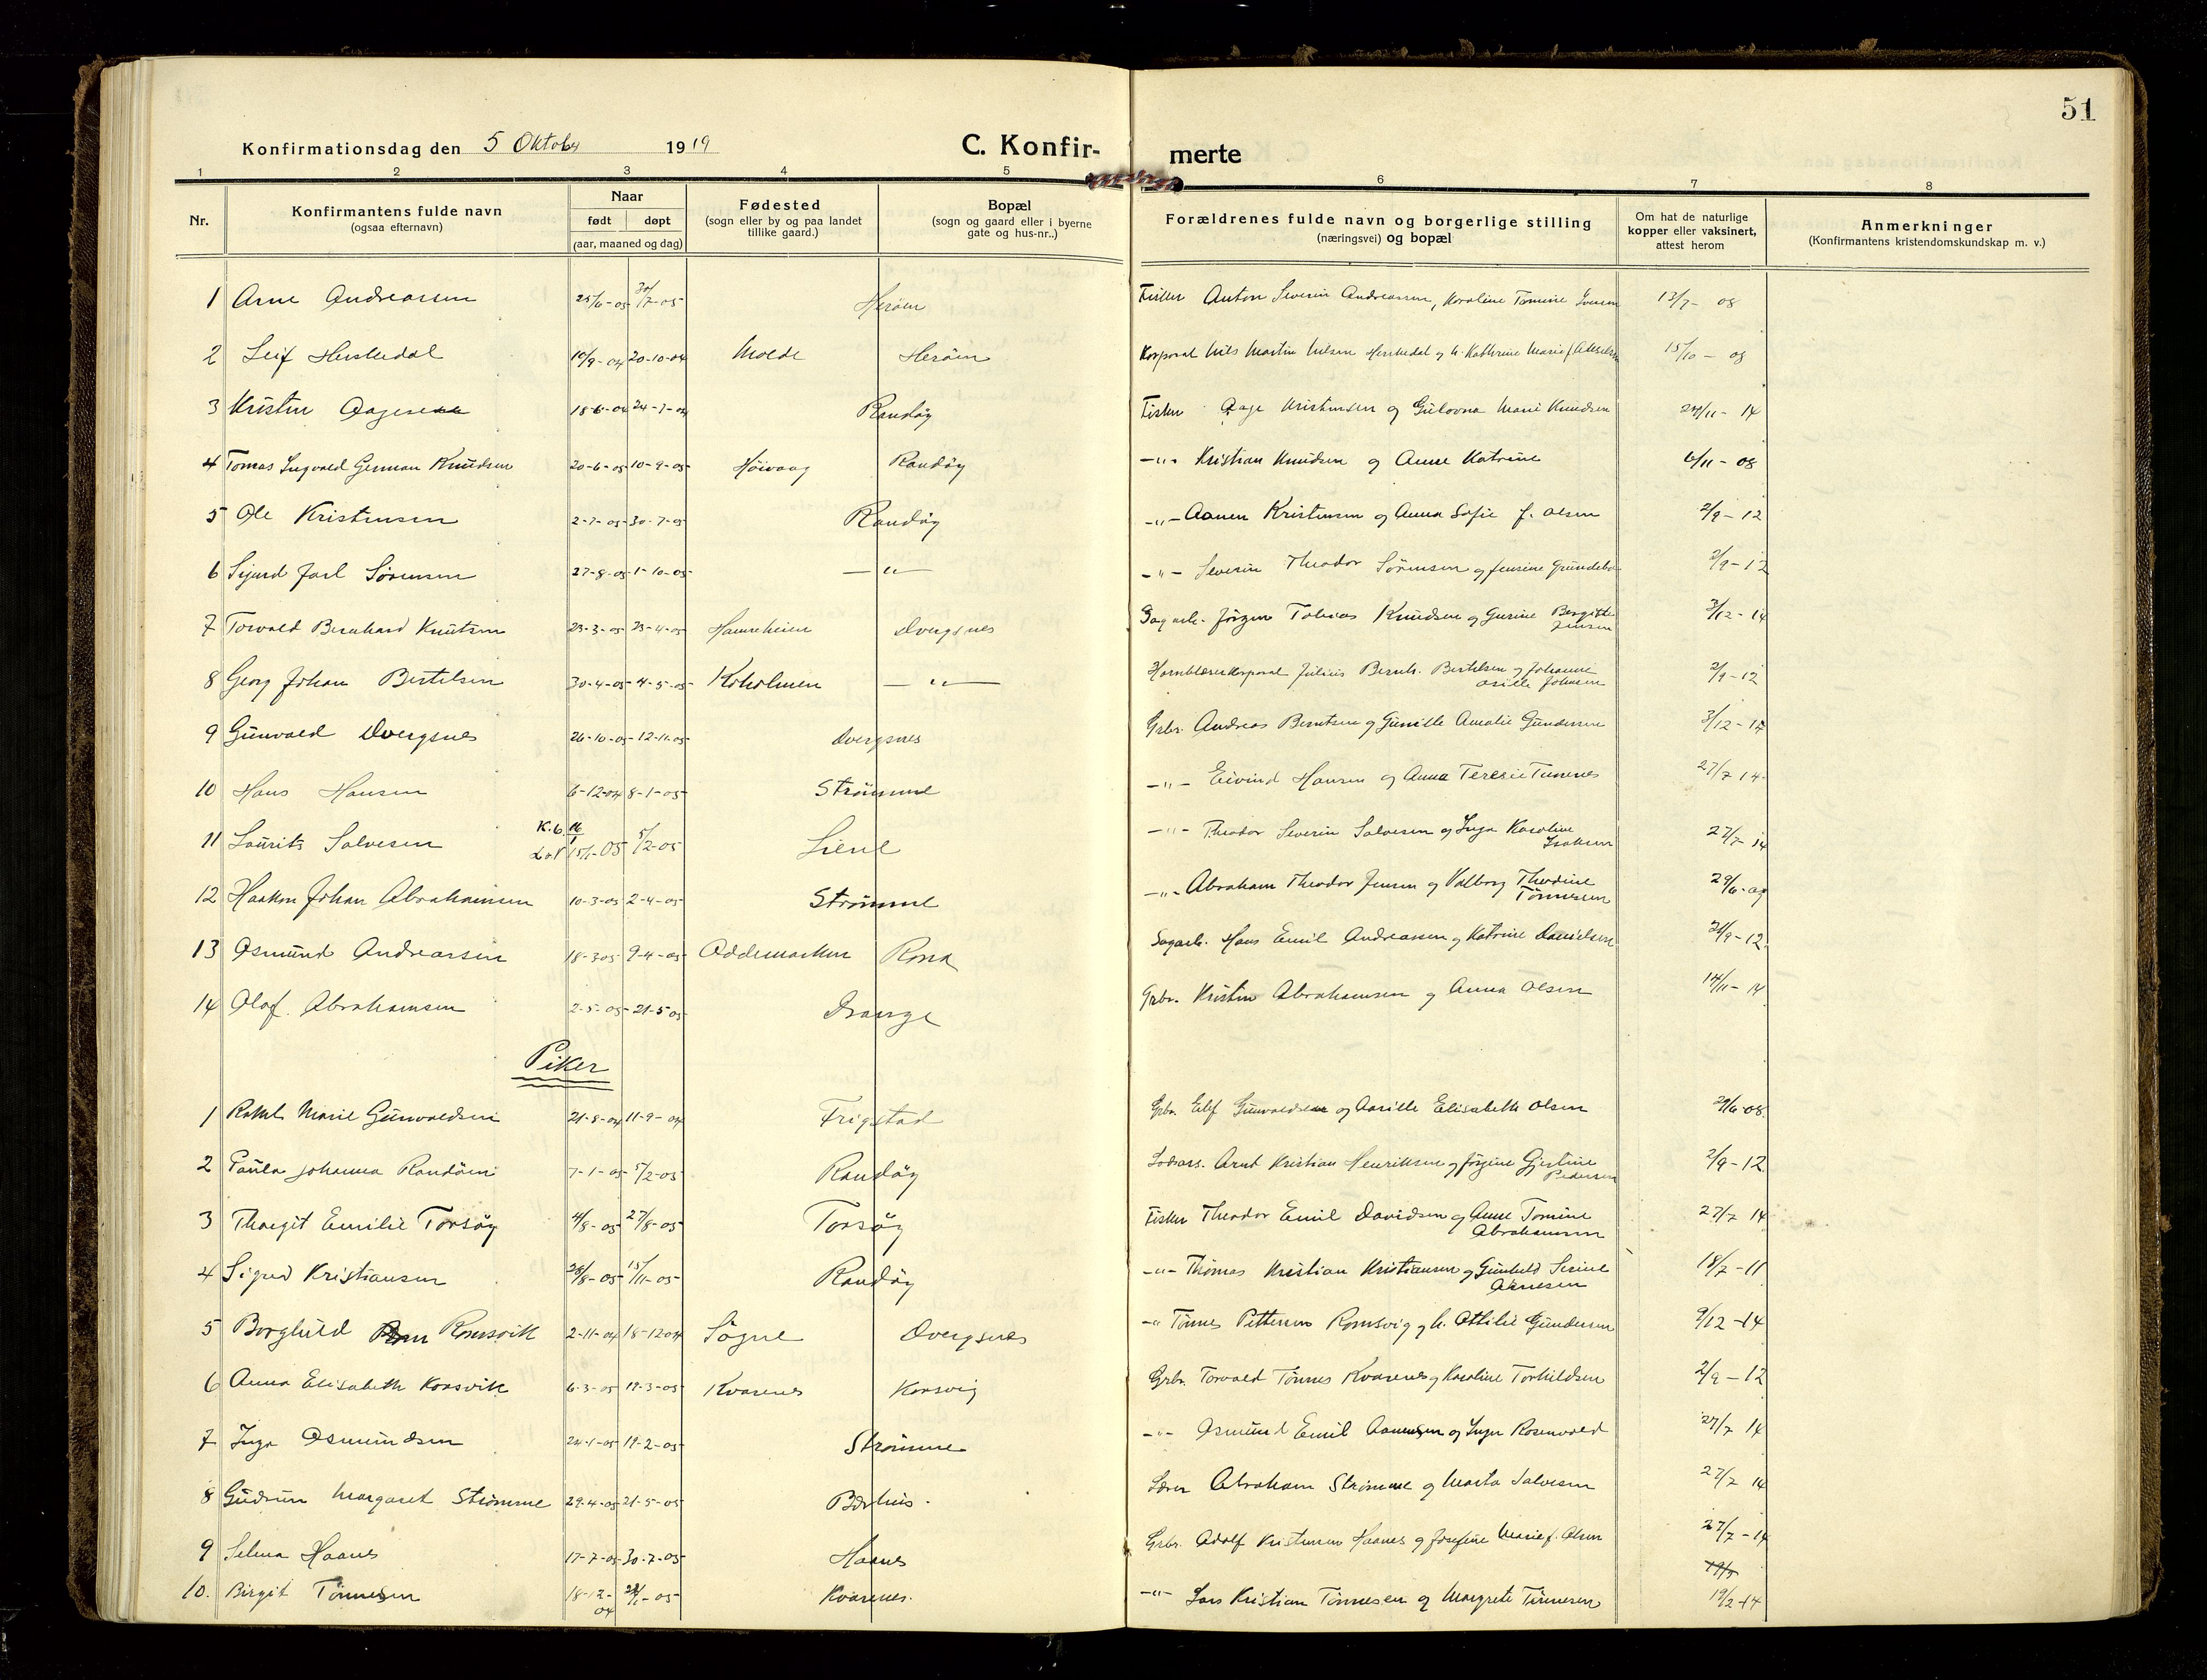 51
Konfirmationsdag den 5 Oktober 1919 C. Konfir- merte
1 2 3 4 5 6 7 8
Nr.
Konfirmantens fulde navn
(ogsaa efternavn)
Naar
født døpt
(aar, maaned og dag)
Fødested
(sogn eller by og paa landet
tillike gaard.)
Bopæl
(sogn og gaard eller i byerne
gate og hus-nr..)
Forældrenes fulde navn og borgerlige stilling
(næringsvei) og bopæl
Om hat de naturlige
kopper eller vaksinert,
attest herom
Anmerkninger
(Konfirmantens kristendomskundskap m. v.)
1 Arne Andreassen 25/6-05 30/7-05 Herøen Fisker Anton Severin Andreassen, Karoline Tomine Iversen 13/7-08
2 Leif Herskedal 10/9-04 20-10-04 Molde Herøen Korporal Nils Martin Nilsen Herskedal og h. Kathrine Marie f. 15/10-08
3 Kristen Aagesen 18-6-04 24-7-04 Randøy Fisker Aage Kristensen og Gulovna Marie Knudsen 24/11-14
4 Tomas Ingvald German Knudsen 20-6-05 10-9-05 Høivaag Randøy -"- Kristian Knudsen og Anne Katrine 6/11-08
5 Ole Kristensen 2-7-05 30-7-05 Randøy -"- Aanen Kristensen og Anna Sofie f. Olsen 2/9-12
6 Sigurd Jarl Sørensen 27-8-05 1-10-05 -"- -"- Severin Theodor Sørensen og Jensine 2/9-12
7 Torvald Bernhard Knutsen 23-3-05 23-4-05 Hamreheien Dvergsnes Sagarb. Jørgen Tobias Knudsen og Gurine Bergitte
Jensen 3/12-14
8 Georg Johan Bertelsen 30-4-05 4-5-05 Koholmen -"- Hornblæserkorporal Julius Bernh. Bertelsen og Johanne
Johnsen 2/9-12
9 Gunvald Dvergsnes 26-10-05 12-11-05 Dvergsnes Grbr. Andreas Berntsen og Gunille Amalie Gundersen 3/12-14
10 Hans Hansen 6-12-04 8-1-05 Strømme -"- Eivind Hansen og Anna Teresie Tunnes 27/7 14
K.b. 16/1
11 Laurits Salvesen 15/1-05 5/2-05 Liene -"- Theodor Severin Salvesen og Inga Karoline
Isaksen 27/7-14
12 Haakon Johan Abrahamsen 10-3-05 2-4-05 Strømme -"- Abraham Theodor Jensen og Valborg Thodine
Tønnessen 29/6-09
13 Osmund Andreassen 18-3-05 9-4-05 Oddemarken Rona Sagarb. Hans Emil Andreassen og Katrine Danielsen 21/9-12
14 Olaf Abrahamsen 2-5-05 21-5-05 Drange Grbr. Kristen Abrahamsen og Anna Olsen 14/11-14
Piker
1 Rakel Marie Gunvaldsen 21-8-04 11-9-04 Frigstad Grbr. Eilef Gunvaldsen og Aasille Elisabeth Olsen 29/6-08
2 Paula Johanna Randøen 7-1-05 5/2-05 Randøy Lodsass. Arnt Kristian Henriksen og Jørgine Gjestine
Pedersen 2/9-12
3 Thorgit Emilie Torsøy 4/8-05 27/8-05 Torsøy Fisker Theodor Emil Davidsen og Anne Tomine
Abrahamsen 27/7 14
4 Sigrud Kristiansen 28/8-05 15/11-05 Randøy -"- Thomas Kristian Kristiansen og Gunhild Serine
Arnesen 18/7-11
5 Borghild Romsvik 2-11-04 18-12-04 Søgne Dvergsnes -"- Tønnes Pettersen Romsvig og h. Ottilie Gundersen 9/12-14
6 Anna Elisabeth Korsvik 6-3-05 19-3-05 Kvarenes Korsvig Grbr. Torvald Tønnes Kvarenes og Karoline Torkildsen 2/9-12
7 Inga Osmundsen 24-1-05 19-2-05 Strømme -"- Osmund Emil Aanensen og Inga Rosenvold 27/7 14
8 Gudrun Margaret Strømme 29-4-05 21-5-05 Bårhus. Lærer Abraham Strømme og Marta Salvesen 27/7 14
9 Selma Haanes 17-7-05 30-7-05 Haanes Grbr. Adolf Kristensen Haanes og Josefine Marie f. Olsen 27/7-14
10. Birgit Tønnesen 18-12-04 22/1-05 Kvarenes. -"- Lars Kristian Tønnesen og Margrete Tønnesen 19/2-14